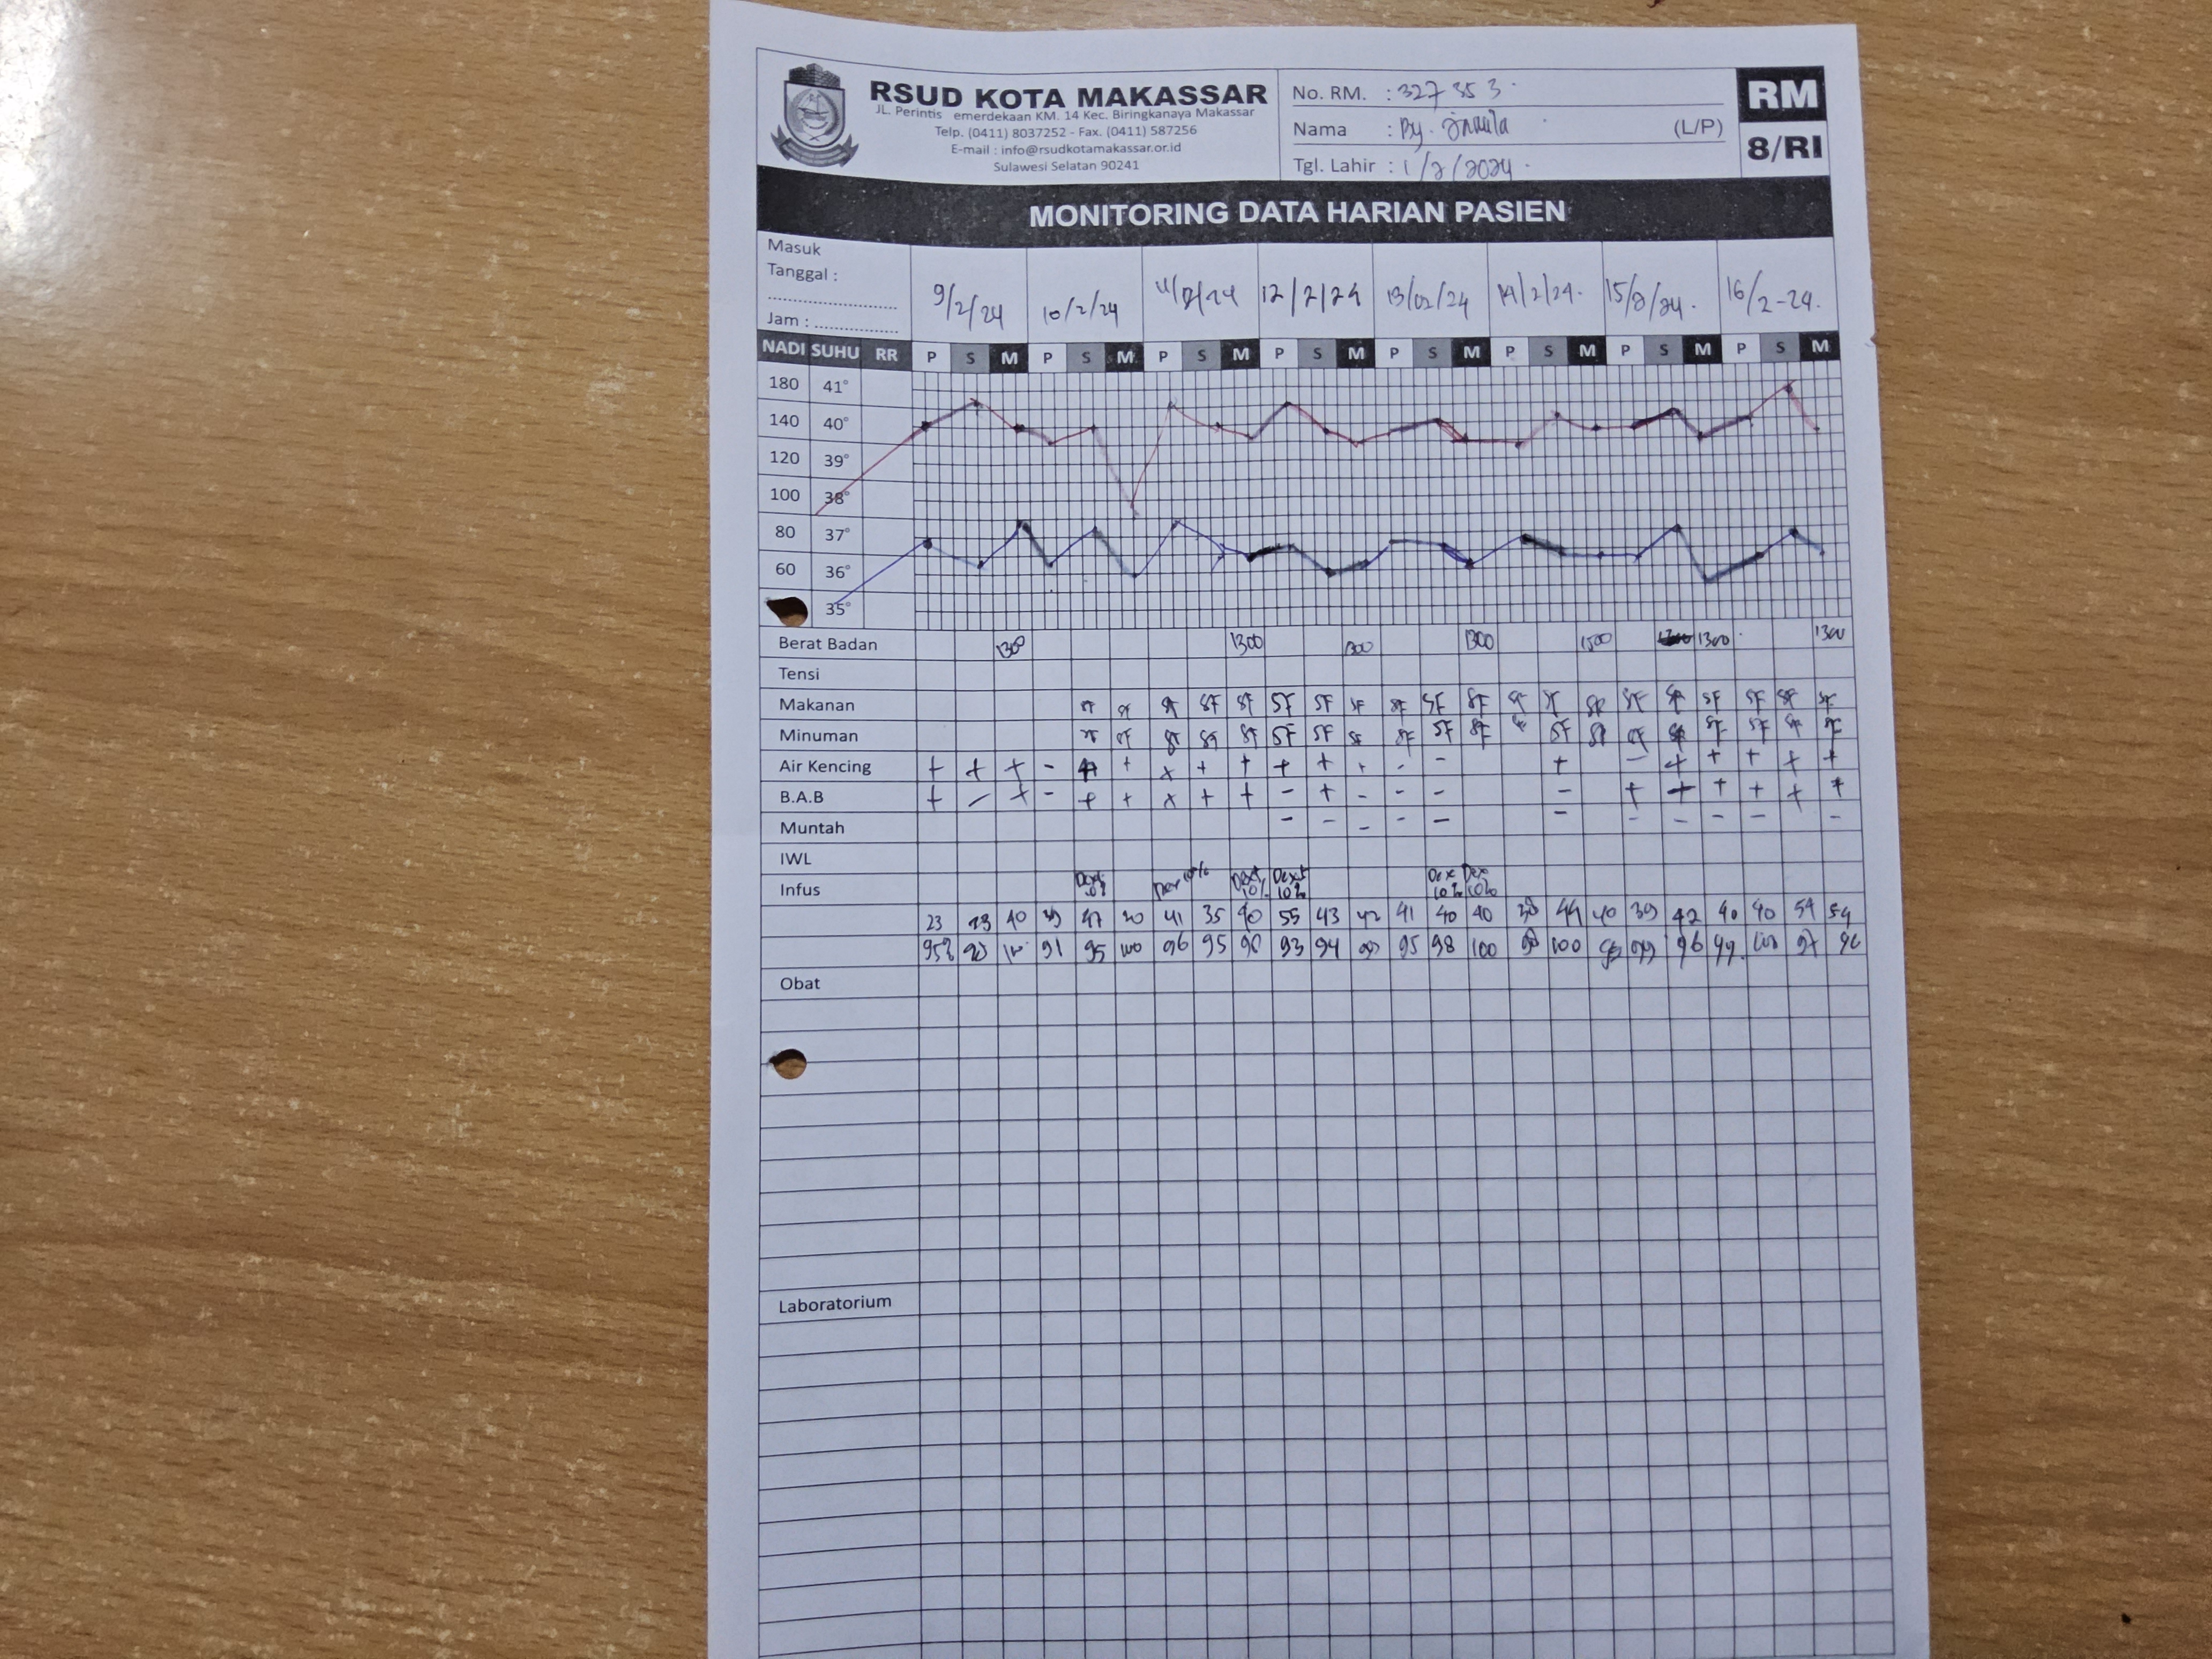 RSUD KOTA MAKASSAR
JL. Perintis emerdekaan KM. 14 Kec. Biringkanaya Makassar
Telp. (0411) 8037252 - Fax. (0411) 587256
E-mail : info@rsudkotamakassar.or.id
Sulawesi Selatan 90241
No. RM. : 327353
Nama : By. (L/P)
Tgl. Lahir : 1/2/2024
RM
8/RI
MONITORING DATA HARIAN PASIEN
Masuk
Tanggal :
Jam :
9/2/24 10/2/24 11/2/24 12/2/24 13/02/24 14/2/24 15/2/24 16/2-24
NADI SUHU RR P S M P S M P S M P S M P S M P S M P S M P S M
180 41°
140 40°
120 39°
100 38°
80 37°
60 36°
35°
Berat Badan 1300 1300 1300 1300 1300 1300
Tensi
Makanan SF SF SF SF SF SF SF SF SF SF SF SF SF
Minuman SF SF SF SF SF SF SF SF SF
Air Kencing + + + - + + + + + + - - + - + + + + +
B.A.B + - + - + + + + + - + - - - - + + + + + +
Muntah - - - - - - - - - - -
IWL
Infus Dext 10% Dext 10% Dex 10% Dex 10%
23 23 40 39 47 41 35 40 55 43 42 41 40 40 38 44 40 39 42 40 40 54 54
95% 91 95 100 96 95 93 94 95 98 100 100 96 99 100 97 96
Obat
Laboratorium